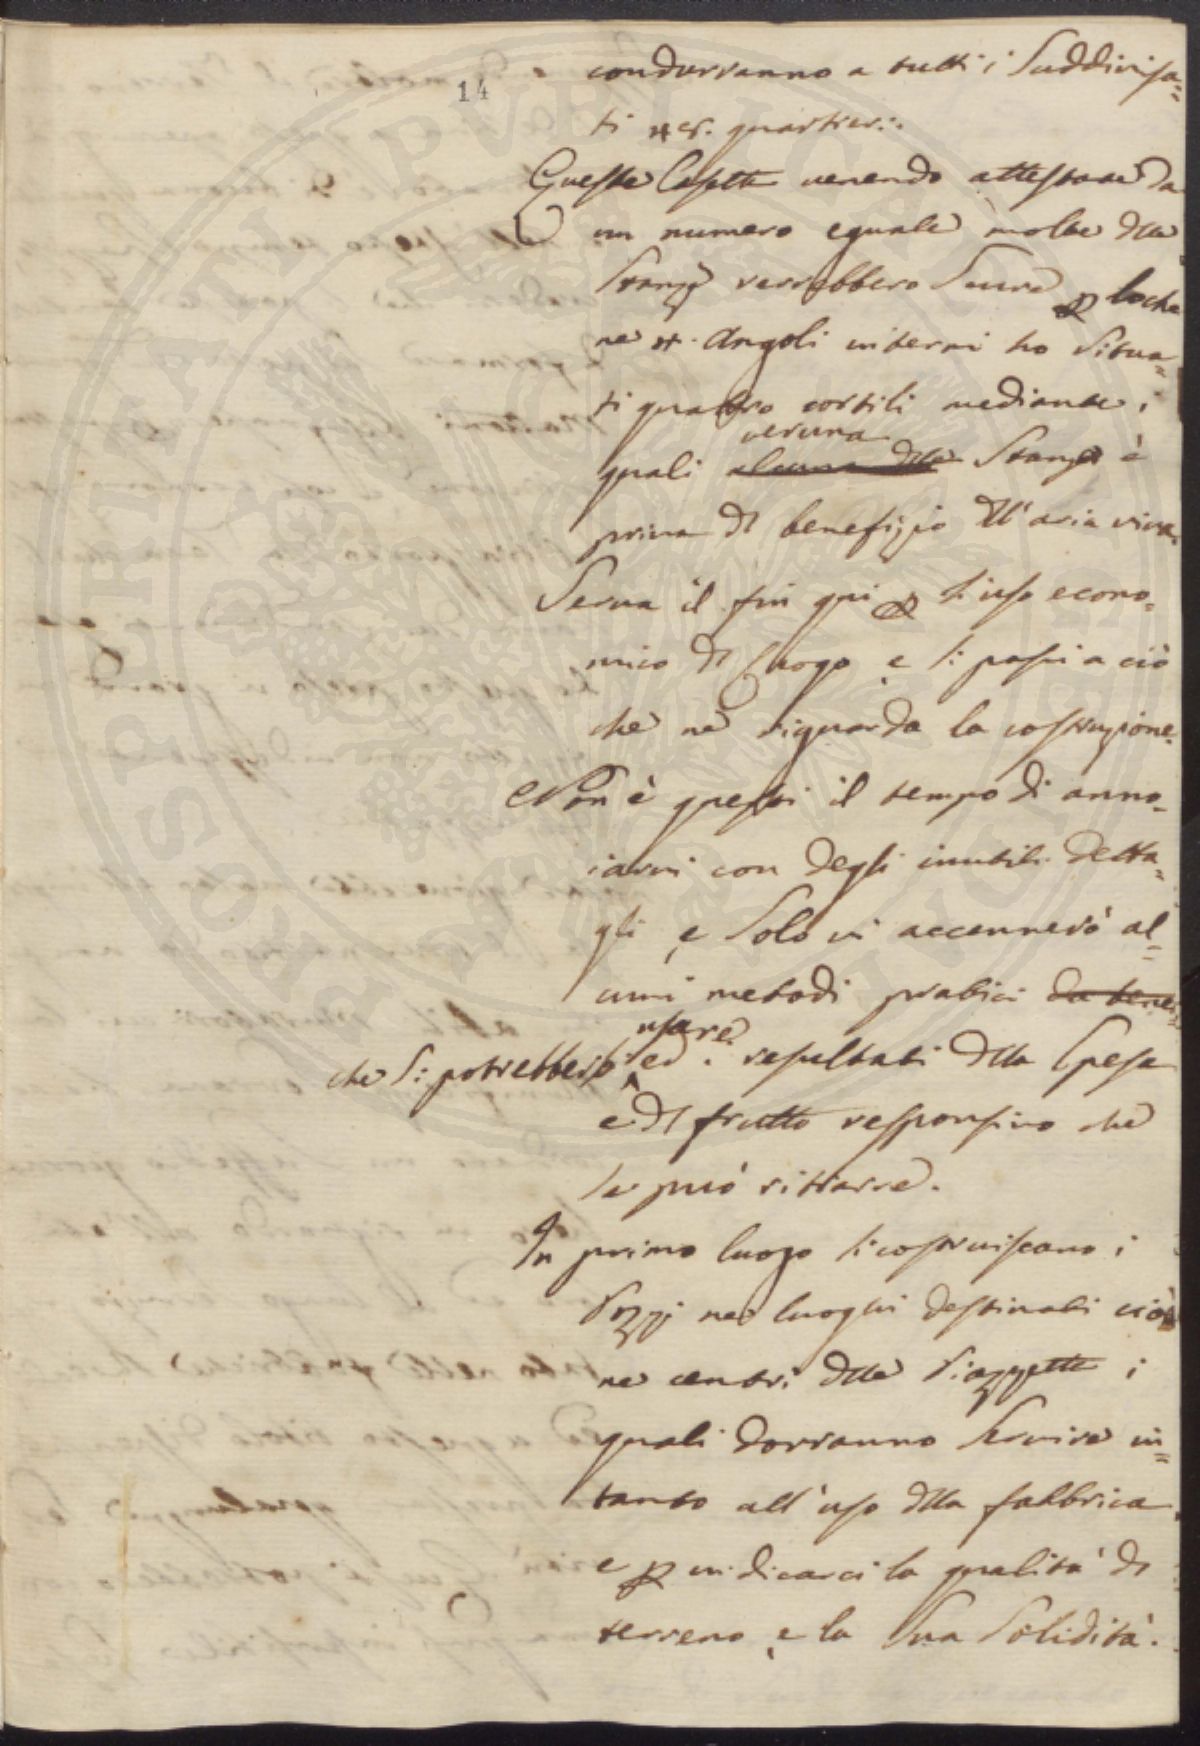 14
condurranno a tutti i Suddivisa=
ti quartieri.
Queste Casette venendo attestate da
un numero eguale molte dlle
Stanze verrebbero Scure loche
ne Angoli interni ho Situa=
ti quattro cortili mediante i
veruna
quali alcuna dlle Stanza è
priva dl benefizio dll'aria viva.
Serva il fin qui l'uso econo=
mico dl luogo e si passi a ciò
che ne riguarda la costruzione.
Non è questi il tempo di anno=
iarvi con degli inutili detta=
gli e Solo vi accennerò al=
cuni metodi pratici da tene=
usare
che Si potrebbero ed i resultati dlla Spesa
e dl frutto responsivo che
se può ritrarre.
In primo luogo si costruiscano i
Pozzi nei luoghi destinati cioè
ne centri dlle Piazzette i
quali dovranno Servire in=
tanto all'uso dlla fabbrica
e indicarci la qualità dl
terreno e la Sua Solidità.
PROSPERITATI PVBLICAE